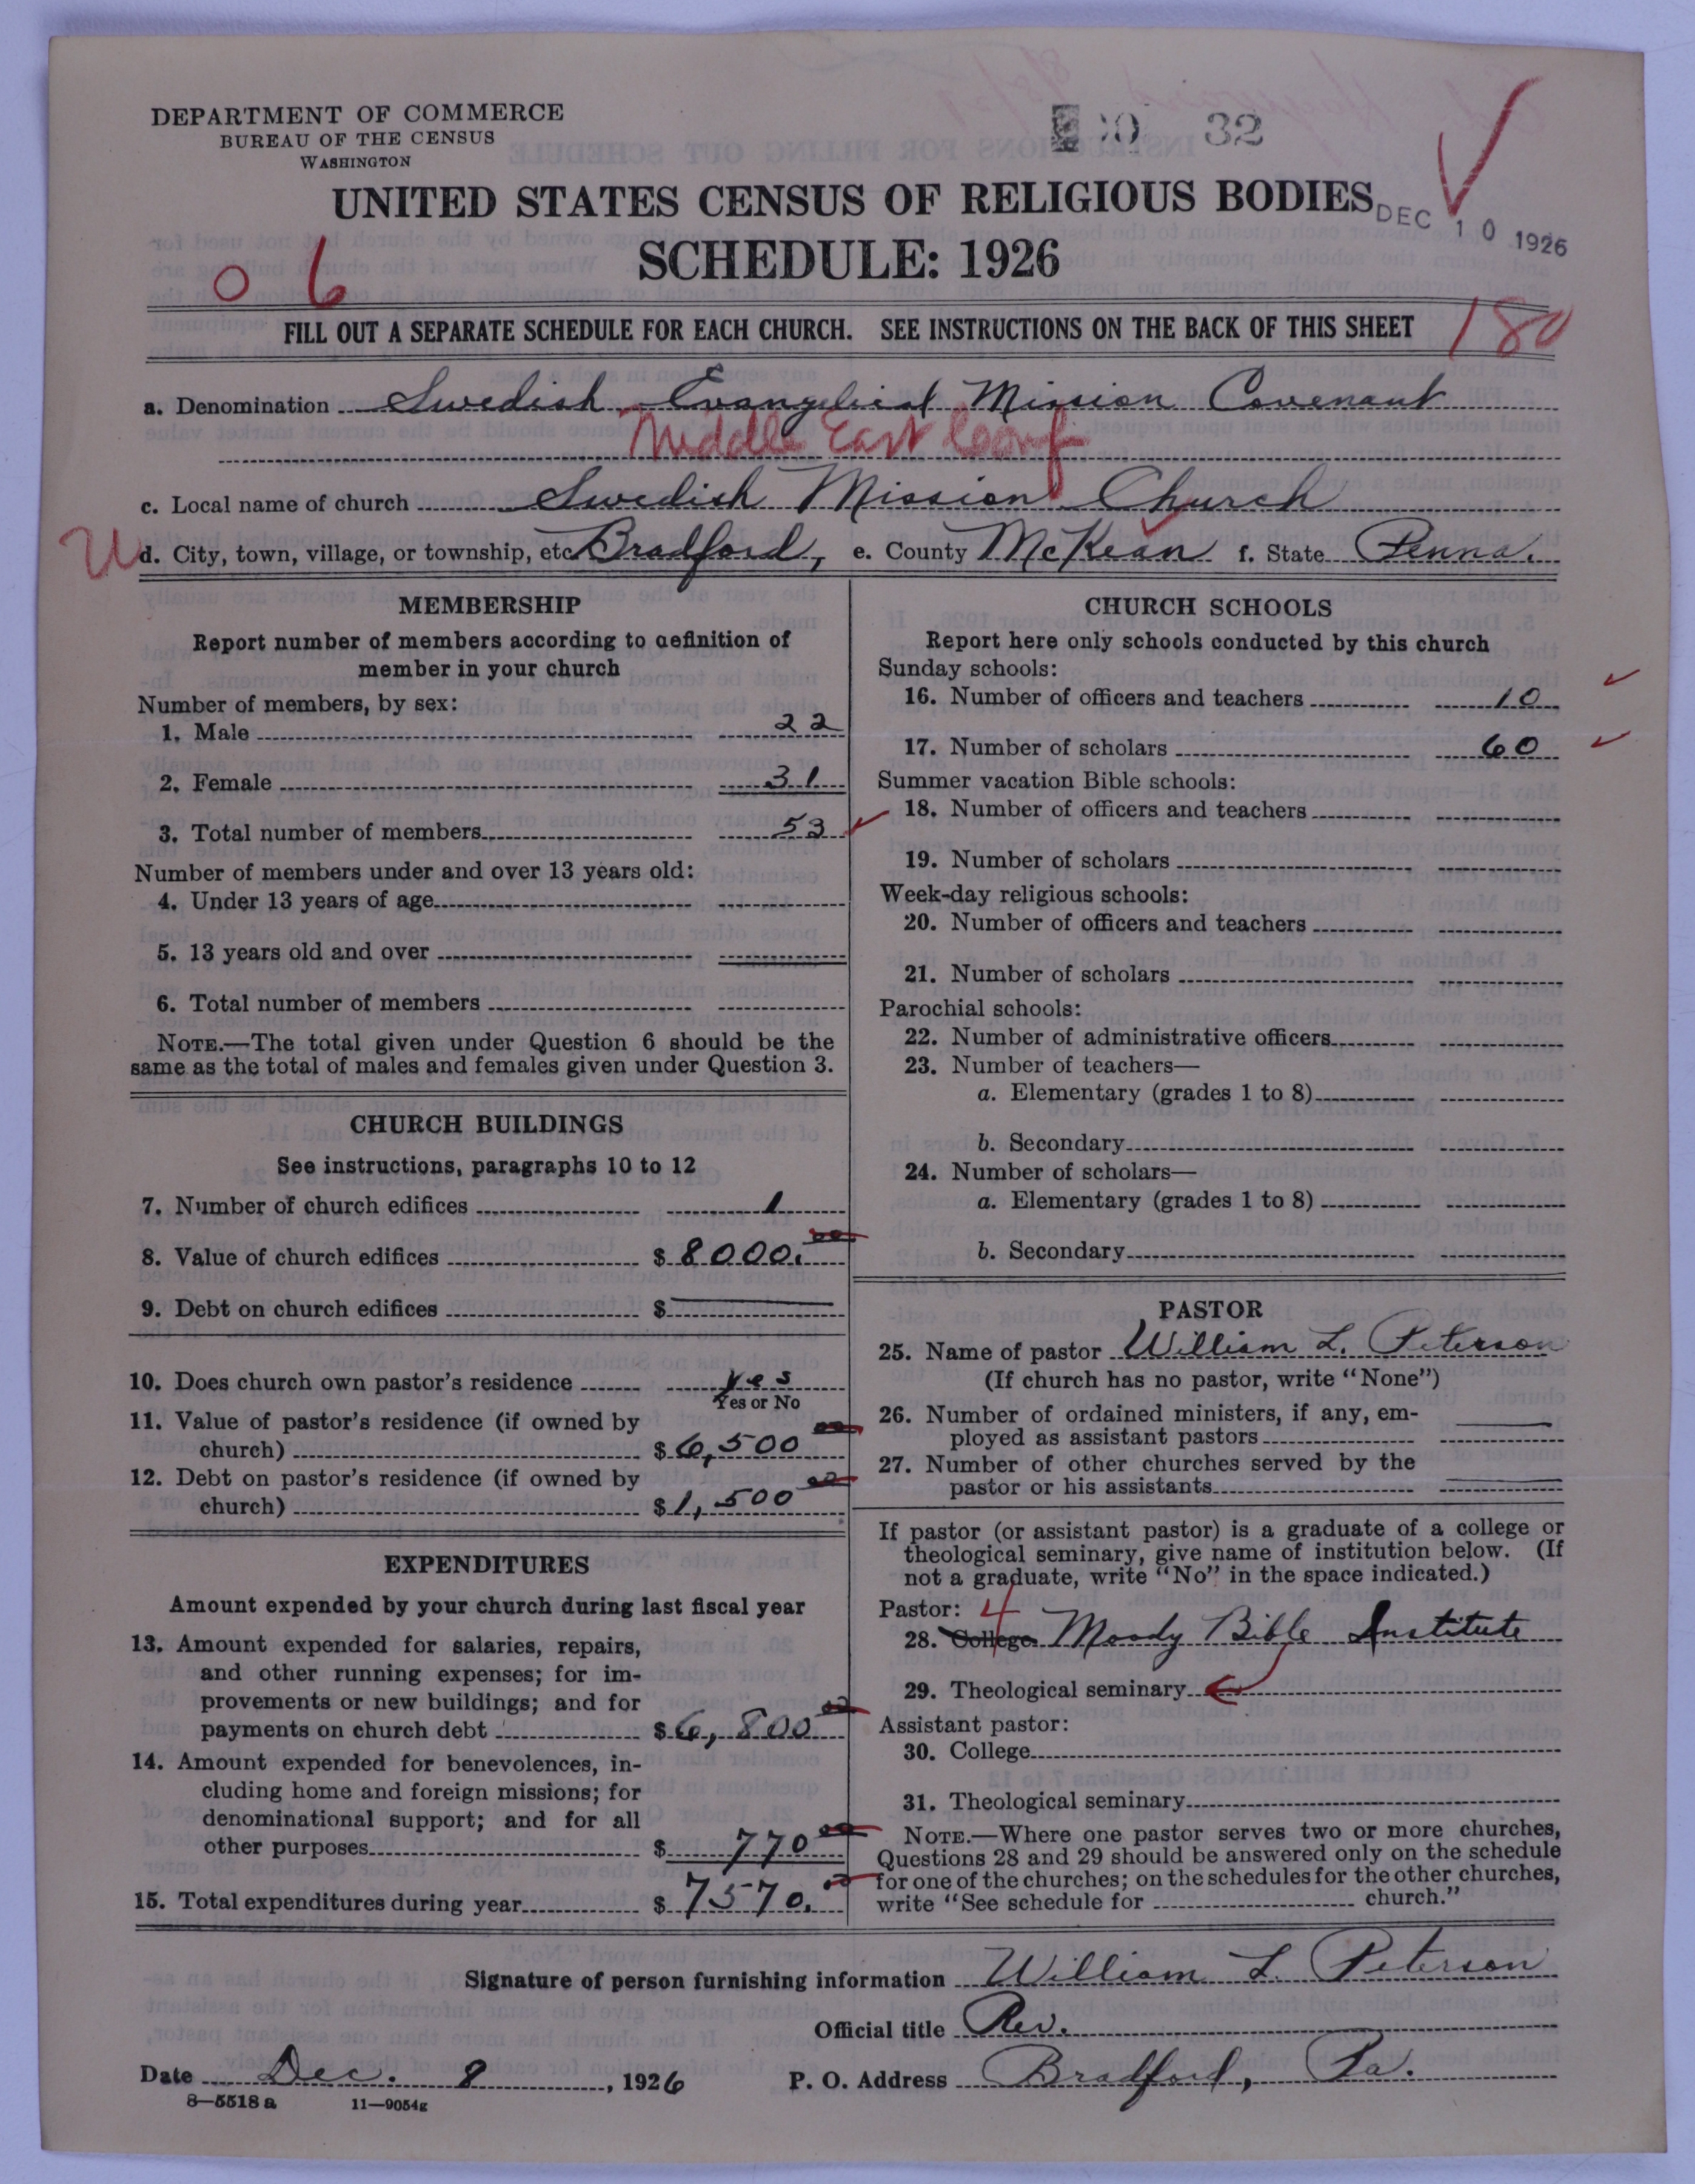 DEPARTMENT OF COMMERCE
BUREAU OF THE CENSUS
WASHINGTON
32
UNITED STATES CENSUS OF RELIGIOUS BODIES
DEC 10 1926
SCHEDULE: 1926
0 6
FILL OUT A SEPARATE SCHEDULE FOR EACH CHURCH. SEE INSTRUCTIONS ON THE BACK OF THIS SHEET
180
a. Denomination Swedish Evangelical Mission Covenant
Middle East Conf
c. Local name of church Swedish Mission Church
U d. City, town, village, or township, etc. Bradford, e. County McKean f. State Penna.
MEMBERSHIP
Report number of members according to definition of
member in your church
Number of members, by sex:
1. Male 22
2. Female 31
3. Total number of members 53
Number of members under and over 13 years old:
4. Under 13 years of age
5. 13 years old and over
6. Total number of members
NOTE.—The total given under Question 6 should be the
same as the total of males and females given under Question 3.
CHURCH BUILDINGS
See instructions, paragraphs 10 to 12
7. Number of church edifices 1
8. Value of church edifices $ 8000.00
9. Debt on church edifices $ —
10. Does church own pastor's residence yes
Yes or No
11. Value of pastor's residence (if owned by
church) $ 6,500 00
12. Debt on pastor's residence (if owned by
church) $ 1,500 00
EXPENDITURES
Amount expended by your church during last fiscal year
13. Amount expended for salaries, repairs,
and other running expenses; for im-
provements or new buildings; and for
payments on church debt $ 6,800 00
14. Amount expended for benevolences, in-
cluding home and foreign missions; for
denominational support; and for all
other purposes $ 770 00
15. Total expenditures during year $ 7570.00
CHURCH SCHOOLS
Report here only schools conducted by this church
Sunday schools:
16. Number of officers and teachers 10
17. Number of scholars 60
Summer vacation Bible schools:
18. Number of officers and teachers
19. Number of scholars
Week-day religious schools:
20. Number of officers and teachers
21. Number of scholars
Parochial schools:
22. Number of administrative officers
23. Number of teachers—
a. Elementary (grades 1 to 8)
b. Secondary
24. Number of scholars—
a. Elementary (grades 1 to 8)
b. Secondary
PASTOR
25. Name of pastor William L. Peterson
(If church has no pastor, write "None")
26. Number of ordained ministers, if any, em-
ployed as assistant pastors —
27. Number of other churches served by the
pastor or his assistants —
If pastor (or assistant pastor) is a graduate of a college or
theological seminary, give name of institution below. (If
not a graduate, write "No" in the space indicated.)
Pastor: 4
28. College Moody Bible Institute
29. Theological seminary
Assistant pastor:
30. College
31. Theological seminary
NOTE.—Where one pastor serves two or more churches,
Questions 28 and 29 should be answered only on the schedule
for one of the churches; on the schedules for the other churches,
write "See schedule for church."
Signature of person furnishing information William L. Peterson
Official title Rev.
Date Dec. 8, 1926 P. O. Address Bradford, Pa.
8—5518 a 11—9054g